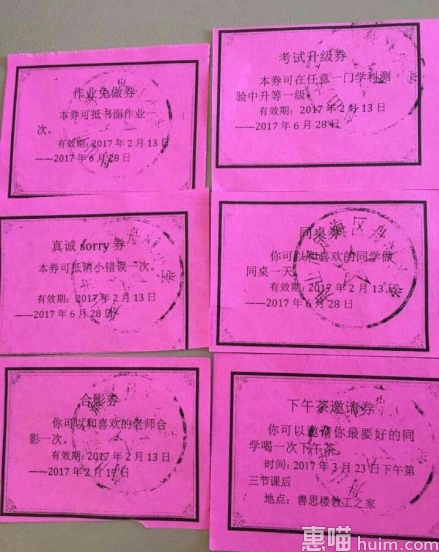 作业免做券
本券可抵书面作业一
次。
有效期：2017年2月13日
——2017年6月28日
考试升级券
本券可在任意一门学科测
验中升等一级。
有效期：2017年2月13日
——2017年6月28日
真诚 sorry 券
本券可抵消小错误一次。
有效期：2017年2月13日
——2017年6月28日
同桌券
你可以和喜欢的同学做
同桌一天。
有效期：2017年2月13日
——2017年6月28日
合影券
你可以和喜欢的老师合
影一次。
有效期：2017年2月13日
——2017年2月17日
下午茶邀请券
你可以邀请你最要好的同
学喝一次下午茶。
时间：2017年3月23日下午第
三节课后
地点：善思楼教工之家
惠喵 huim.com